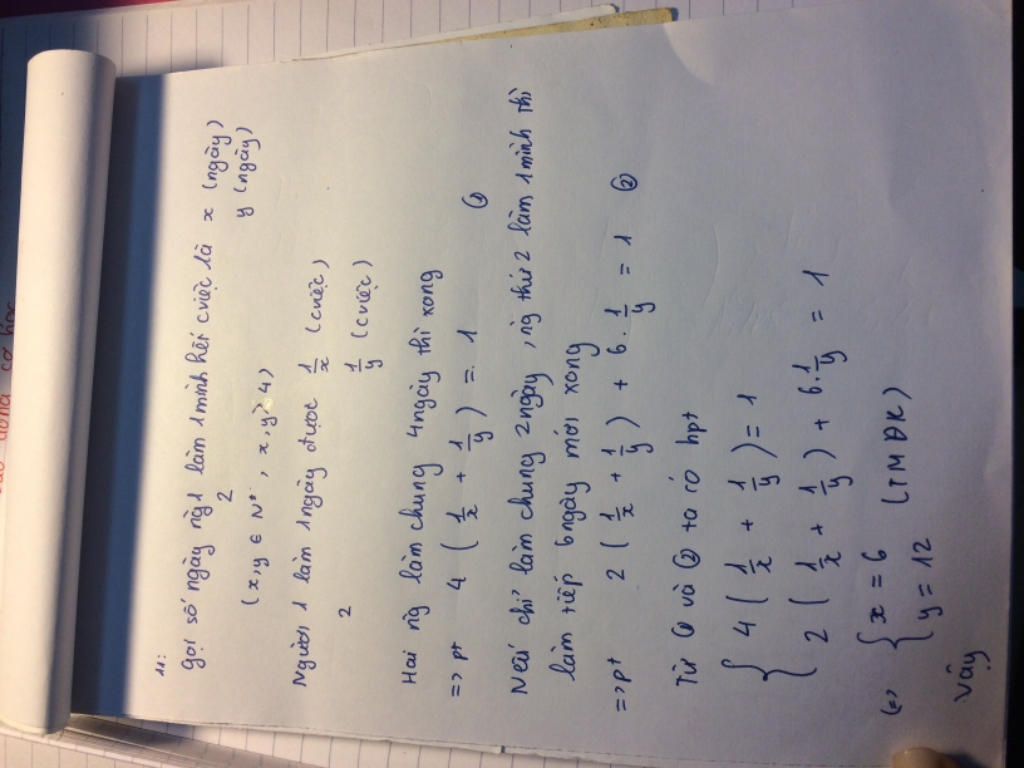 11:
gọi số ngày ng 1 làm 1 mình hết cviệc là x (ngày)
2 y (ngày)
(x, y ∈ N*, x, y > 4)
Người 1 làm 1 ngày được 1/x (cviệc)
2 1/y (cviệc)
Hai ng làm chung 4 ngày thì xong
=> pt 4 ( 1/x + 1/y ) = 1 ①
Nếu chỉ làm chung 2 ngày, ng thứ 2 làm 1 mình thì
làm tiếp 6 ngày mới xong
=> pt 2 ( 1/x + 1/y ) + 6 . 1/y = 1 ②
Từ ① và ② ta có hpt
{ 4 ( 1/x + 1/y ) = 1
2 ( 1/x + 1/y ) + 6 . 1/y = 1
(=) { x = 6 (TMĐK)
y = 12
Vậy